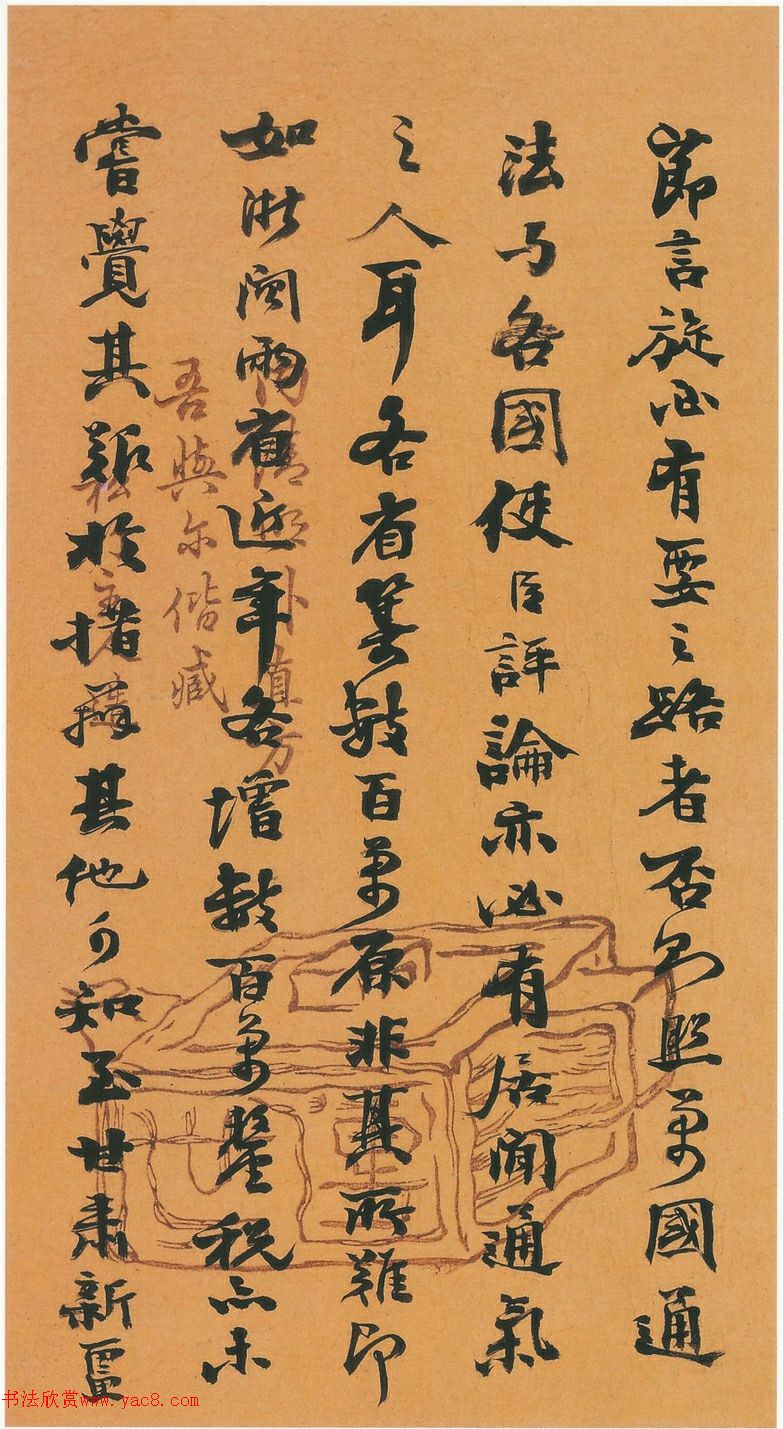 節言旋必有要之路者否則照萬國通
法与各國使臣評論亦必有居間通氣
之人耳各省筹數百萬原非其所難即
如浙閩兩省近年各增數百萬釐税亦未
嘗覺其艱於措籌其他可知至甘肅新疆
吾與尔偕臧
书法欣赏www.yac8.com